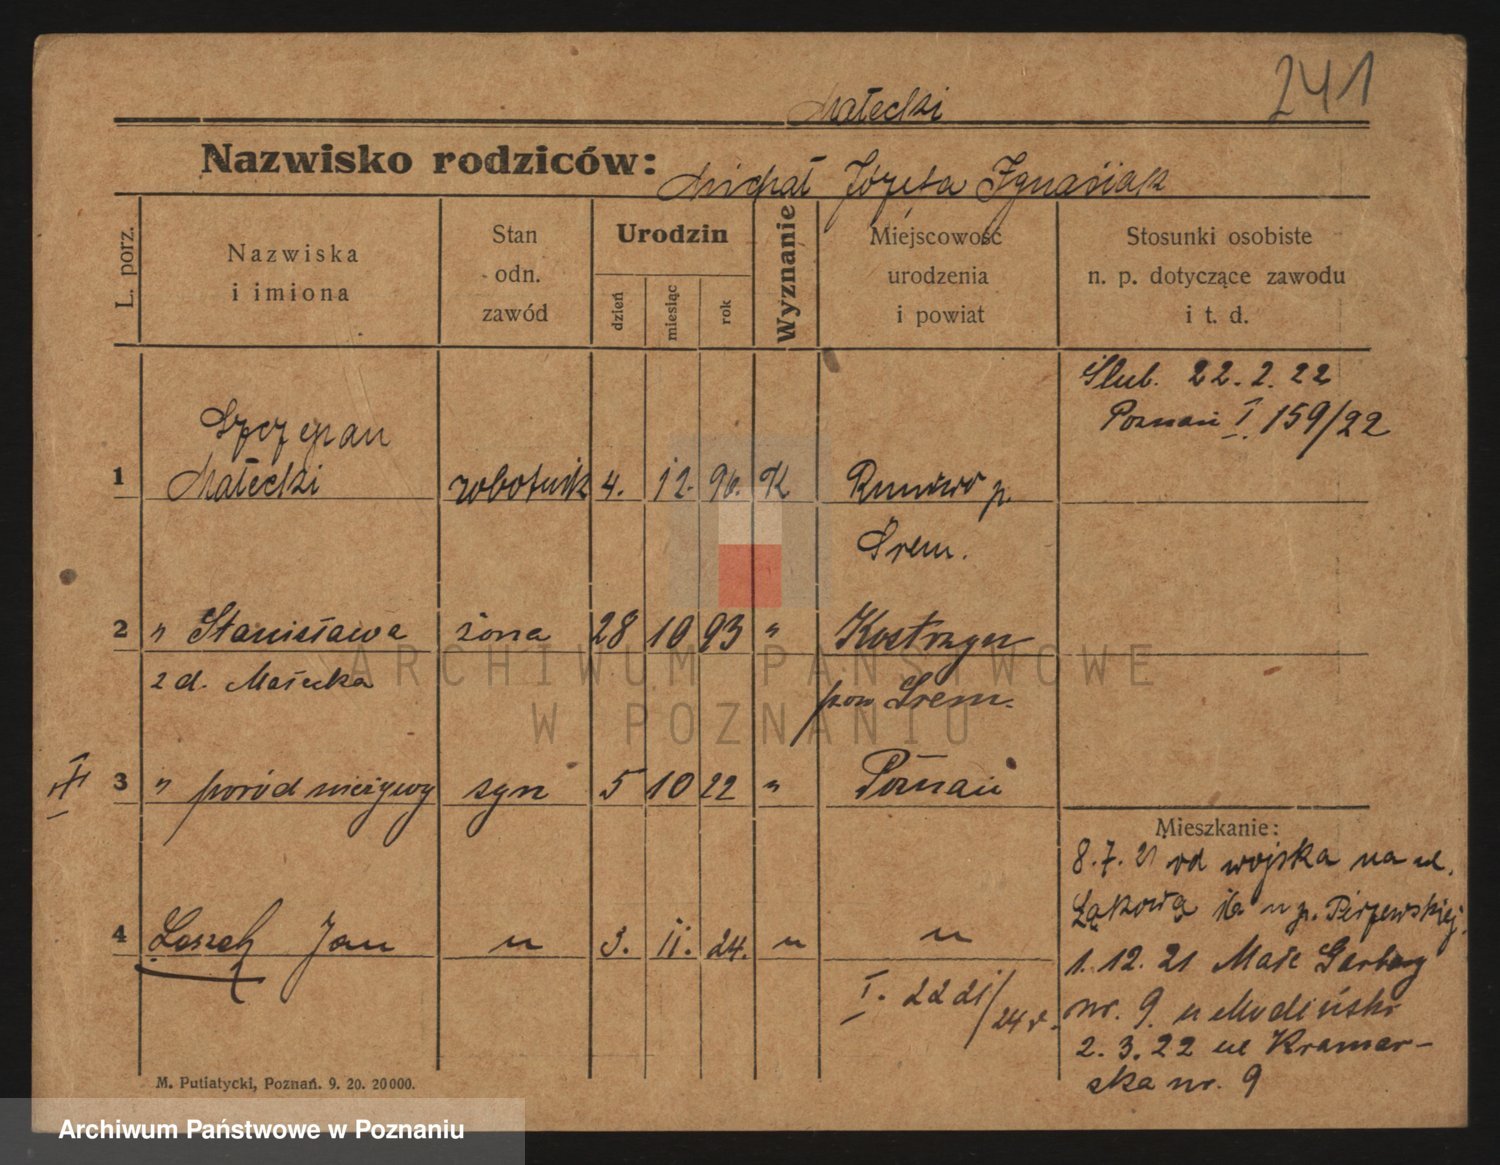 241
Małecki
Nazwisko rodziców: Michał Józefa Ignasiak
L. porz.
Nazwiska
i imiona
Stan
odn.
zawód
Urodzin
dzień
miesiąc
rok
Wyznanie
Miejscowość
urodzenia
i powiat
Stosunki osobiste
n. p. dotyczące zawodu
i t. d.
Ślub. 22. 2. 22
Poznań I. 159/22
Szczepan
1 Małecki robotnik 4. 12. 96. K p.
Śrem.
2 " Stanisława żona 28 10 93 " Kostrzyn
z d. Małecka
pow Śrem.
3 " poród nieżywy syn 5 10 22 " Poznań
Mieszkanie:
8. 7. 21 od wojska na ul.
Łąkową u p.
4 Leszek Jan " 3. 11. 24. " "
1. 12. 21 Małe Garbary
I. /24 r.
nr. 9 u
2. 3. 22 ul Kramar-
ska nr. 9
M. Putiatycki, Poznań. 9. 20. 20000.
ARCHIWUM PAŃSTWOWE
W POZNANIU
Archiwum Państwowe w Poznaniu